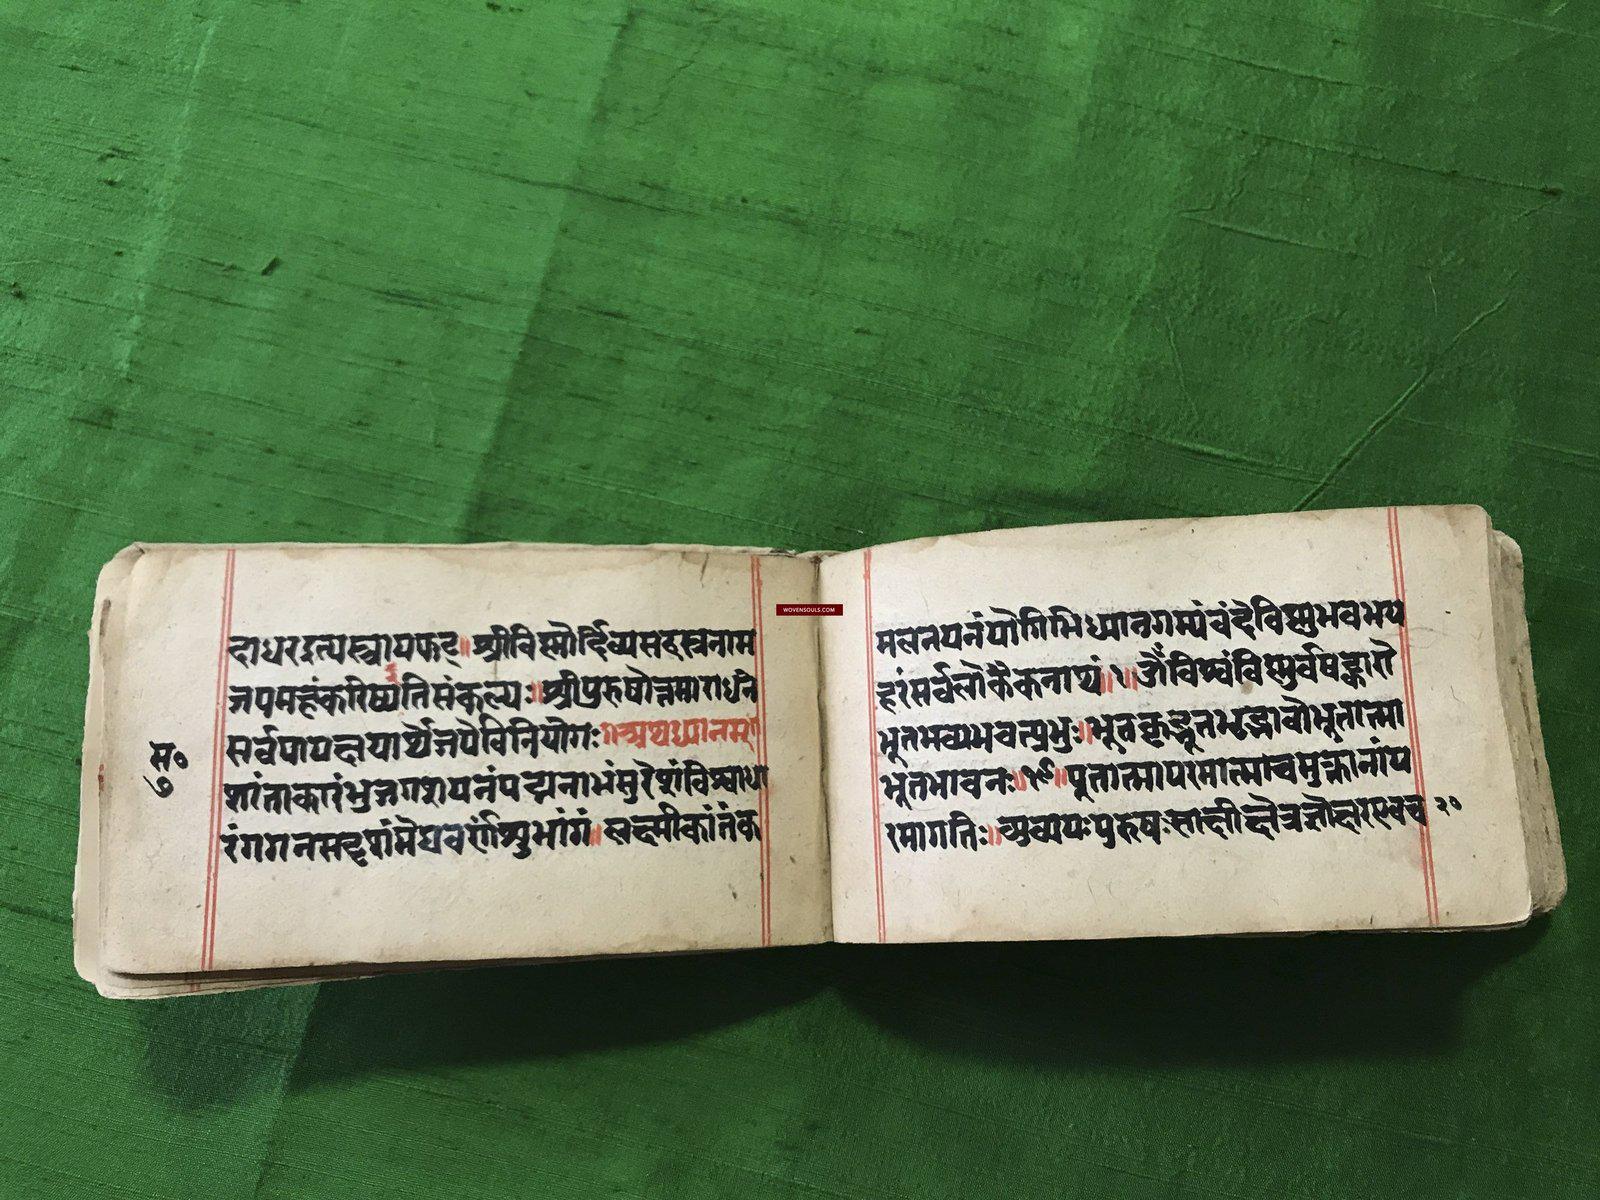 दाधरइत्यस्त्रायफट्॥श्रीविष्णोर्दिव्यसहस्रनाम
जपमहंकरिष्येतिसंकल्प्यः॥श्रीपुरुषोत्तमाराधनं
सर्वपापक्षयार्थेजपेविनियोगः॥अथध्यानम्॥
स॰
७
शांताकारंभुजगशयनंपद्मनाभंसुरेशंविश्वाधा
रंगगनसदृशंमेघवर्णंशुभांगं॥लक्ष्मीकांतंक
WOVENSOULS.COM
मलनयनंयोगिभिध्यानगम्यंवंदेविष्णुभवभय
हरंसर्वलोकैकनाथं॥१॥ॐविश्वंविष्णुर्वषट्कारो
भूतभव्यभवत्प्रभुः॥भूतकृद्भूतभृद्भावोभूतात्मा
भूतभावनः॥१९॥पूतात्मापरमात्माचमुक्तानांप
रमागतिः॥अव्ययःपुरुषःसाक्षीक्षेत्रज्ञोक्षरएवच २०